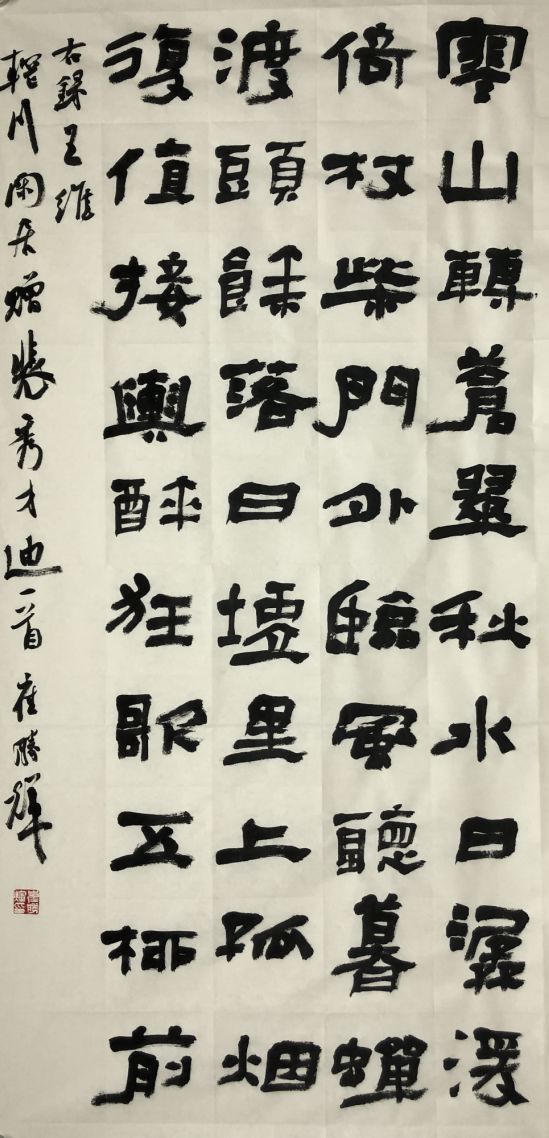 寒山轉蒼翠秋水日潺湲
倚杖柴門外臨風聽暮蟬
渡頭餘落日墟里上孤烟
復值接輿醉狂歌五柳前
右録王維
輞川閑居贈裴秀才迪一首 崔勝輝